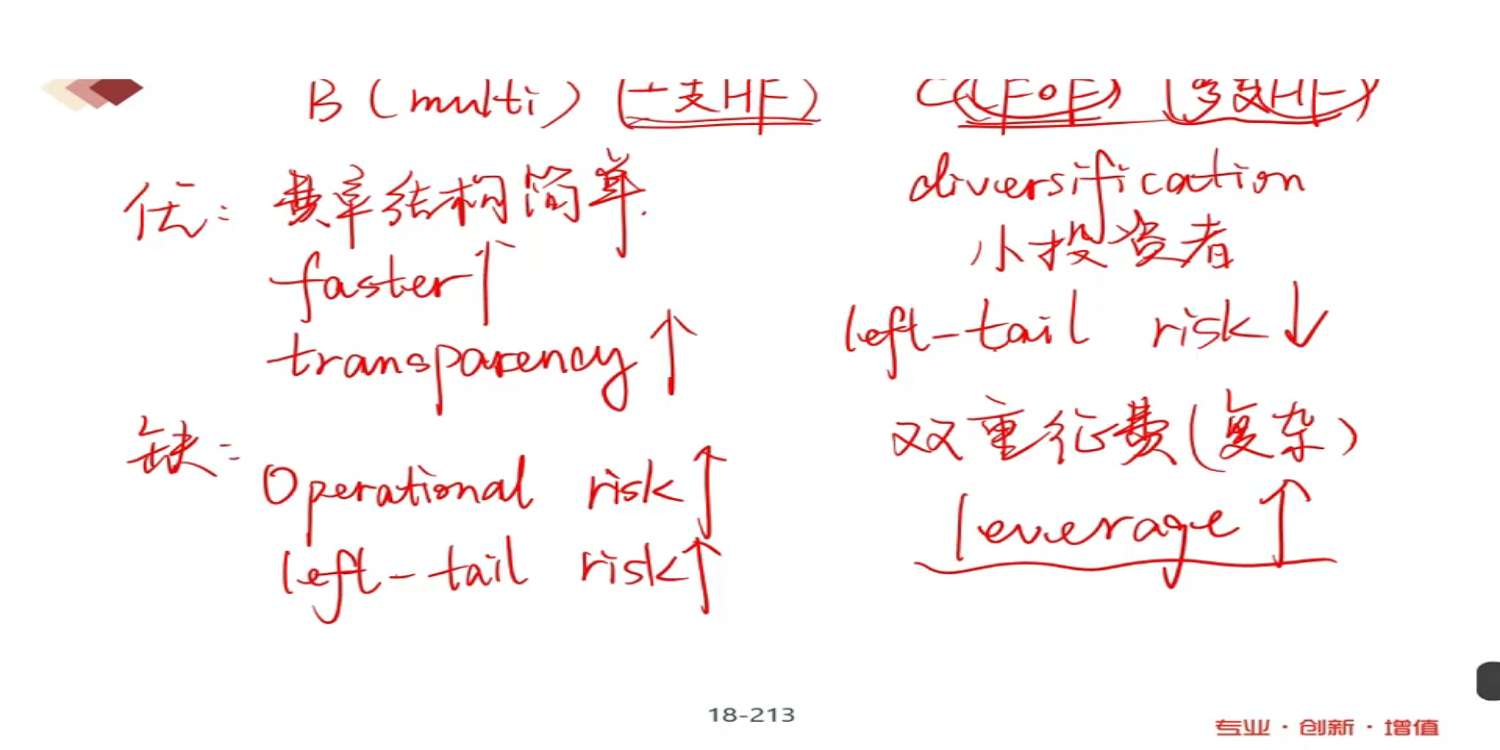 B (multi) (一支HF) C(FOF) (多支HF)
优: 费率结构简单.
faster↑
transparency↑
缺: Operational risk↑
left-tail risk↑
diversification
小投资者
left-tail risk↓
双重征费(复杂)
leverage↑
18-213
专业·创新·增值